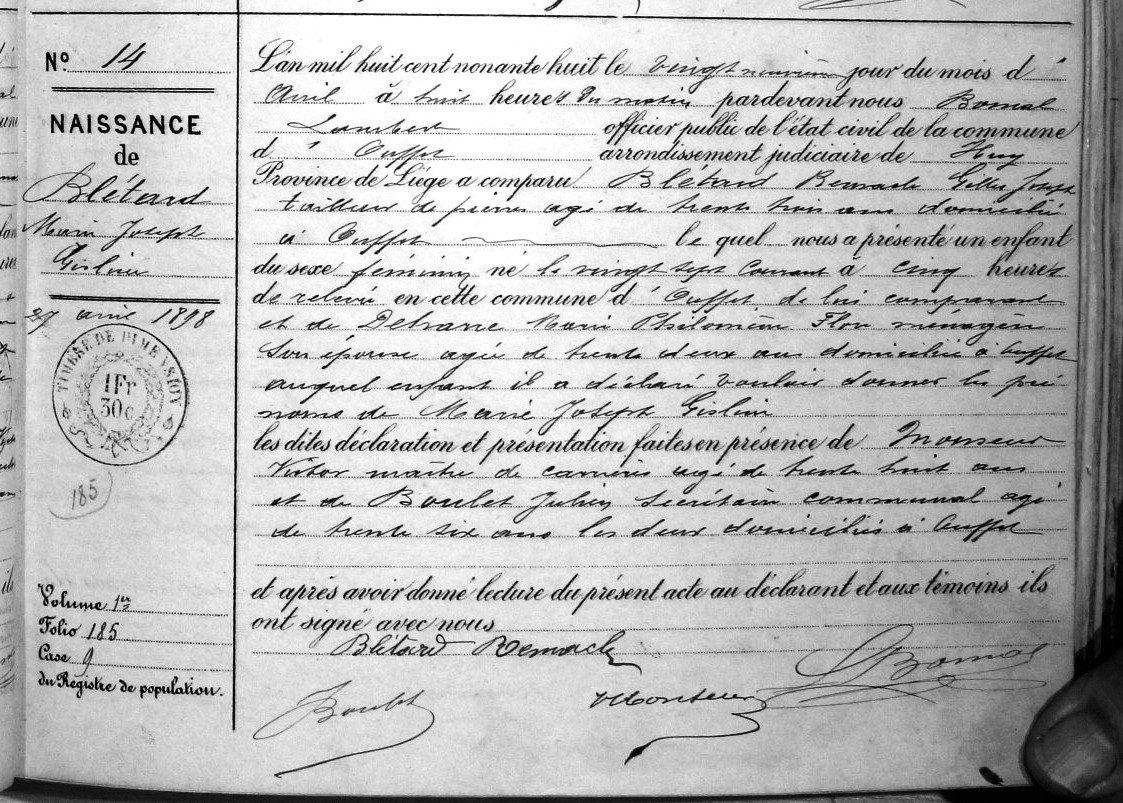 Nº 14
NAISSANCE
de
Blétard
Marie Joseph
Gislain
27 avril 1898
TIMBRE DE DIMENSION
1Fr
30c
185
Volume 1er
Folio 185
Case 9
du Régistre de population.
L'an mil huit cent nonante huit le vingt neuvième jour du mois d'
Avril à huit heures du matin pardevant nous Bomal
Lambert officier public de l'état civil de la commune
d' Ouffet arrondissement judiciaire de Huy
Province de Liége a comparu Blétard Remacle Gilles Joseph
tailleur de pierres agé de trente trois ans domicilié
à Ouffet le quel nous a présenté un enfant
du sexe féminin né le vingt sept courant à cinq heures
de relevée en cette commune d' Ouffet de lui comparant
et de Marie Philomène Flore ménagère
son épouse agée de trente deux ans domiciliée à Ouffet
auquel enfant il a déclaré vouloir donner les pré
noms de Marie Joseph Gislain
les dites déclaration et présentation faites en présence de Monseur
Victor maître de carrières agé de trente huit ans
et de Boulet Julien secrétaire communal agé
de trente six ans les deux domiciliés à Ouffet
et après avoir donné lecture du présent acte au déclarant et aux témoins ils
ont signé avec nous
Blétard Remacle
LBomal
JBoulet
VMonseur